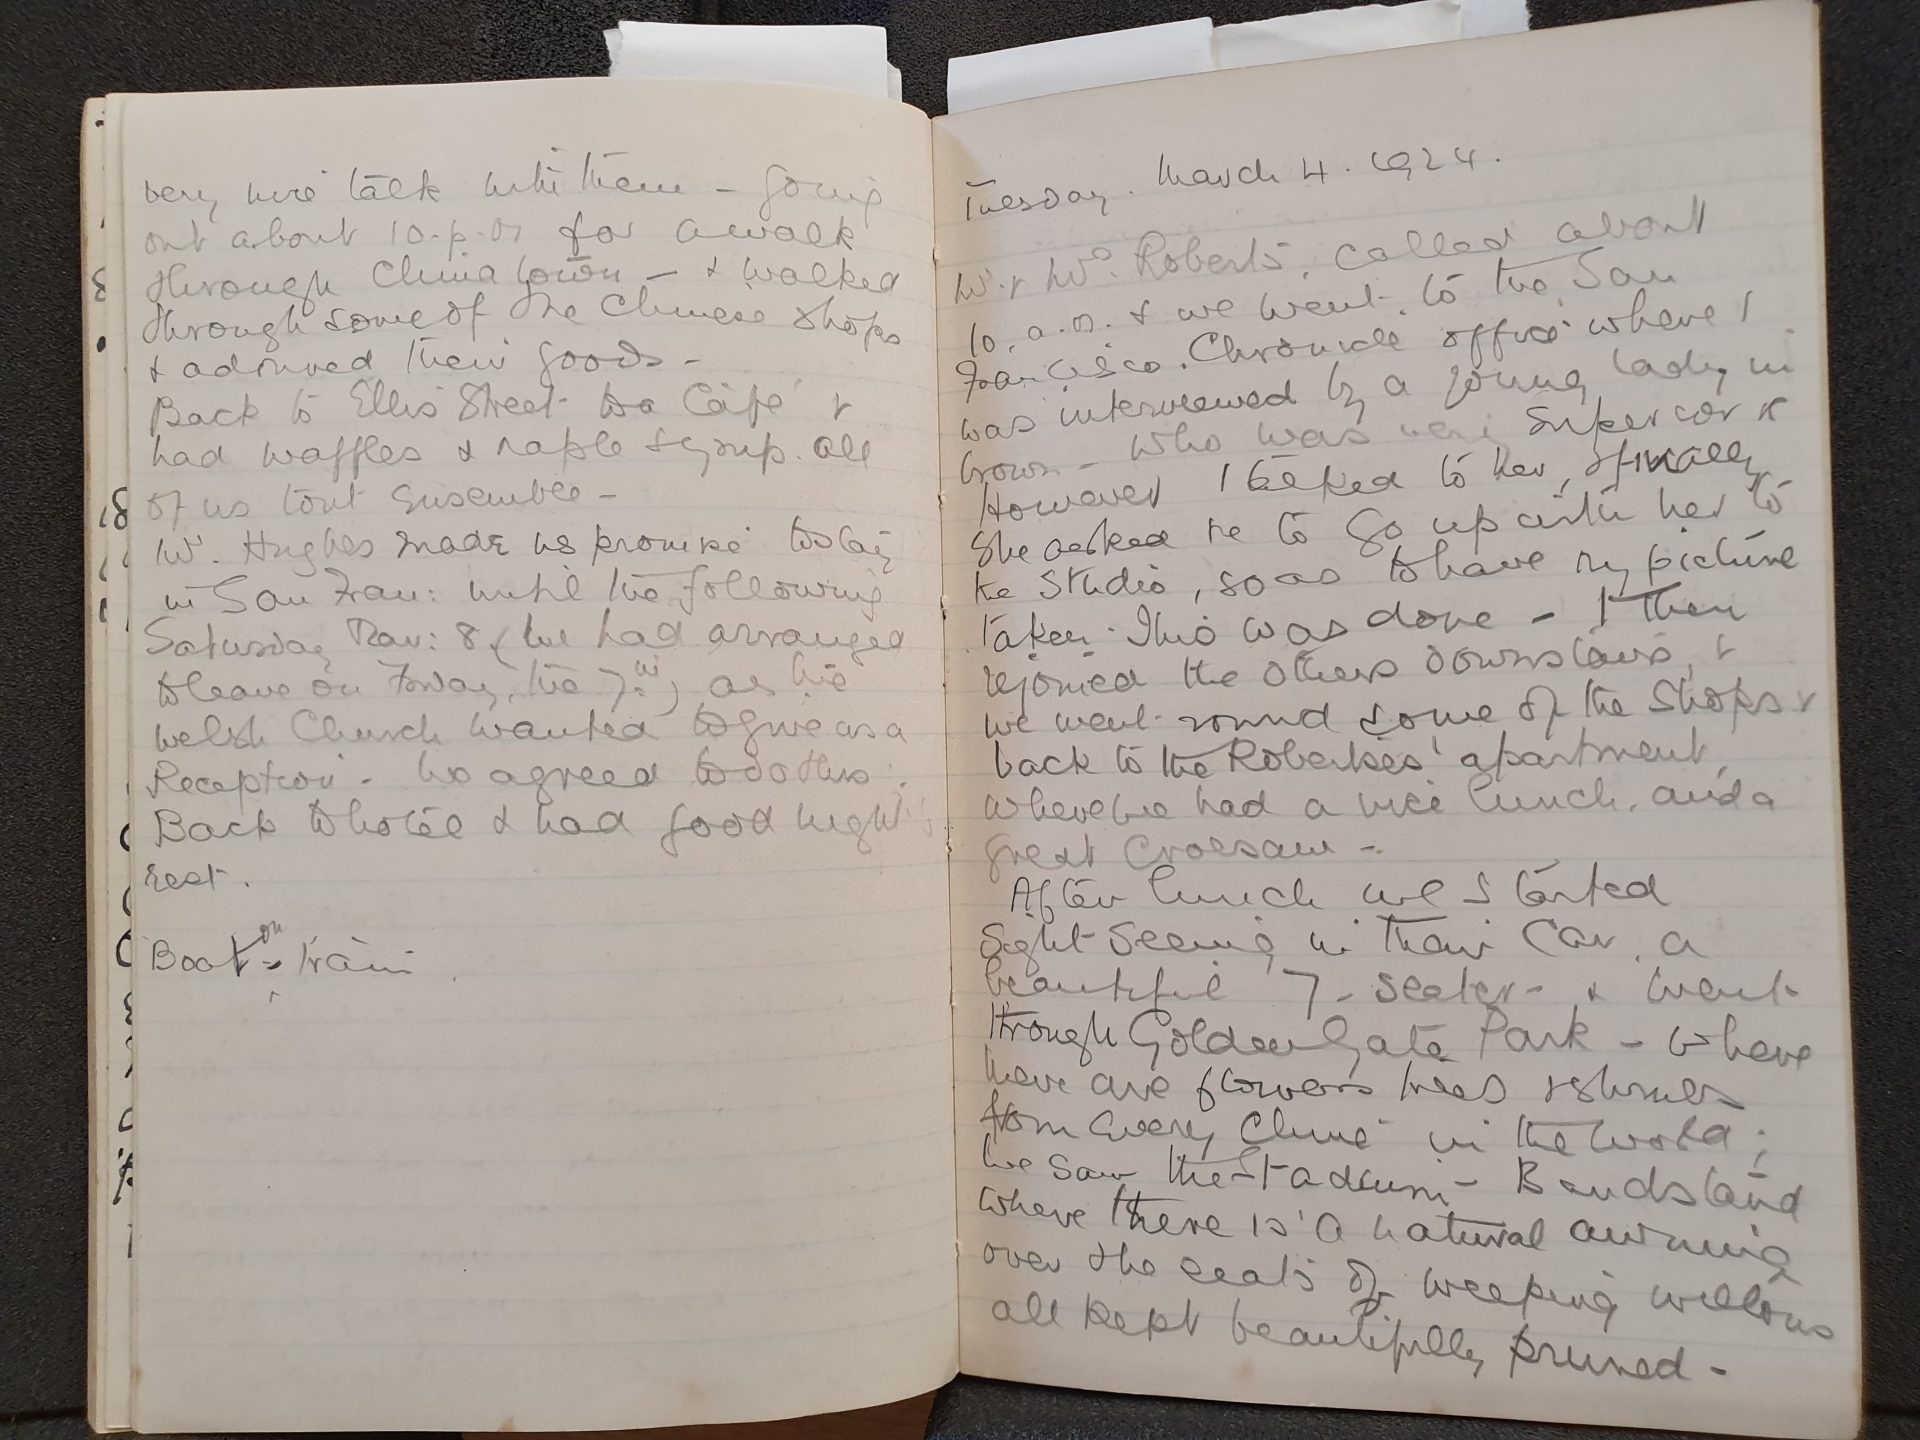 very nice talk with them - going
out about 10-p.m for a walk
through Chinatown - & walked
through some of the Chinese shops
& admired their goods -
Back to Ellis Street to a Café &
had waffles & maple syrup. all
of us tout ensemble -
Mr. Hughes made us promise to stay
in San Fran: until the following
Saturday Mar: 8 (we had arranged
to leave on Friday, the 7th) as the
Welsh Church wanted to give us a
Reception - We agreed to do this.
Back to hotel & had good night's
rest.
Boat on train
Tuesday. March 4. 1924.
Mr. & Mrs. Roberts, called about
10. a.m. & we went to the San
Francisco. Chronicle office where I
was interviewed by a young lady in
brown - who was very superior
However I talked to her, & finally
she asked me to go up with her to
the Studio, so as to have my picture
taken. This was done - I then
rejoined the others downstairs, &
we went round some of the Shops &
back to the Robertses' apartment,
where we had a nice lunch, and a
great Croesaw -
After lunch we started
Sight Seeing in their Car, a
beautiful 7-seater - & went
through Golden Gate Park - where
there are flowers trees & shrubs
from every Clime in the world;
We saw the Stadium - Bandstand
where there is a natural awning
over the seats of weeping willows
all kept beautifully pruned -